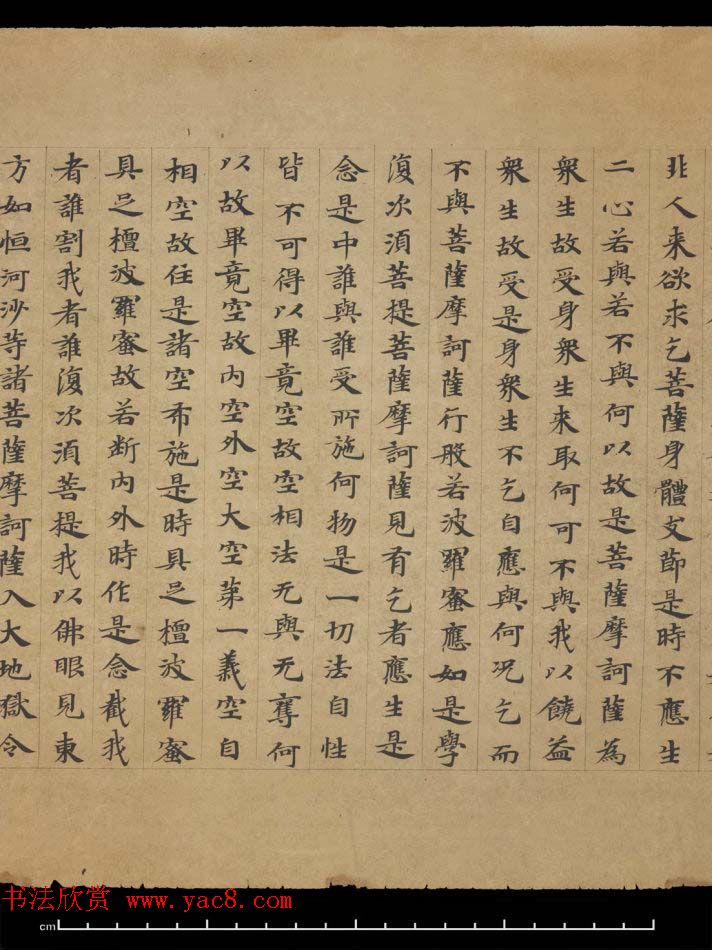 非人来欲求乞菩薩身體支節是時不應生
二心若與若不與何以故是菩薩摩訶薩為
衆生故受身衆生来取何可不與我以饒益
衆生故受是身衆生不乞自應與何况乞而
不與菩薩摩訶薩行般若波羅蜜應如是學
復次湏菩提菩薩摩訶薩見有乞者應生是
念是中誰與誰受所施何物是一切法自性
皆不可得以畢竟空故空相法无與无奪何
以故畢竟空故内空外空大空苐一義空自
相空故住是諸空布施是時具足檀波羅蜜
具足檀波羅蜜故若断内外時作是念截我
者誰割我者誰復次湏菩提我以佛眼見東
方如恒河沙等諸菩薩摩訶薩入大地獄令
书法欣赏 www.yac8.com
cm